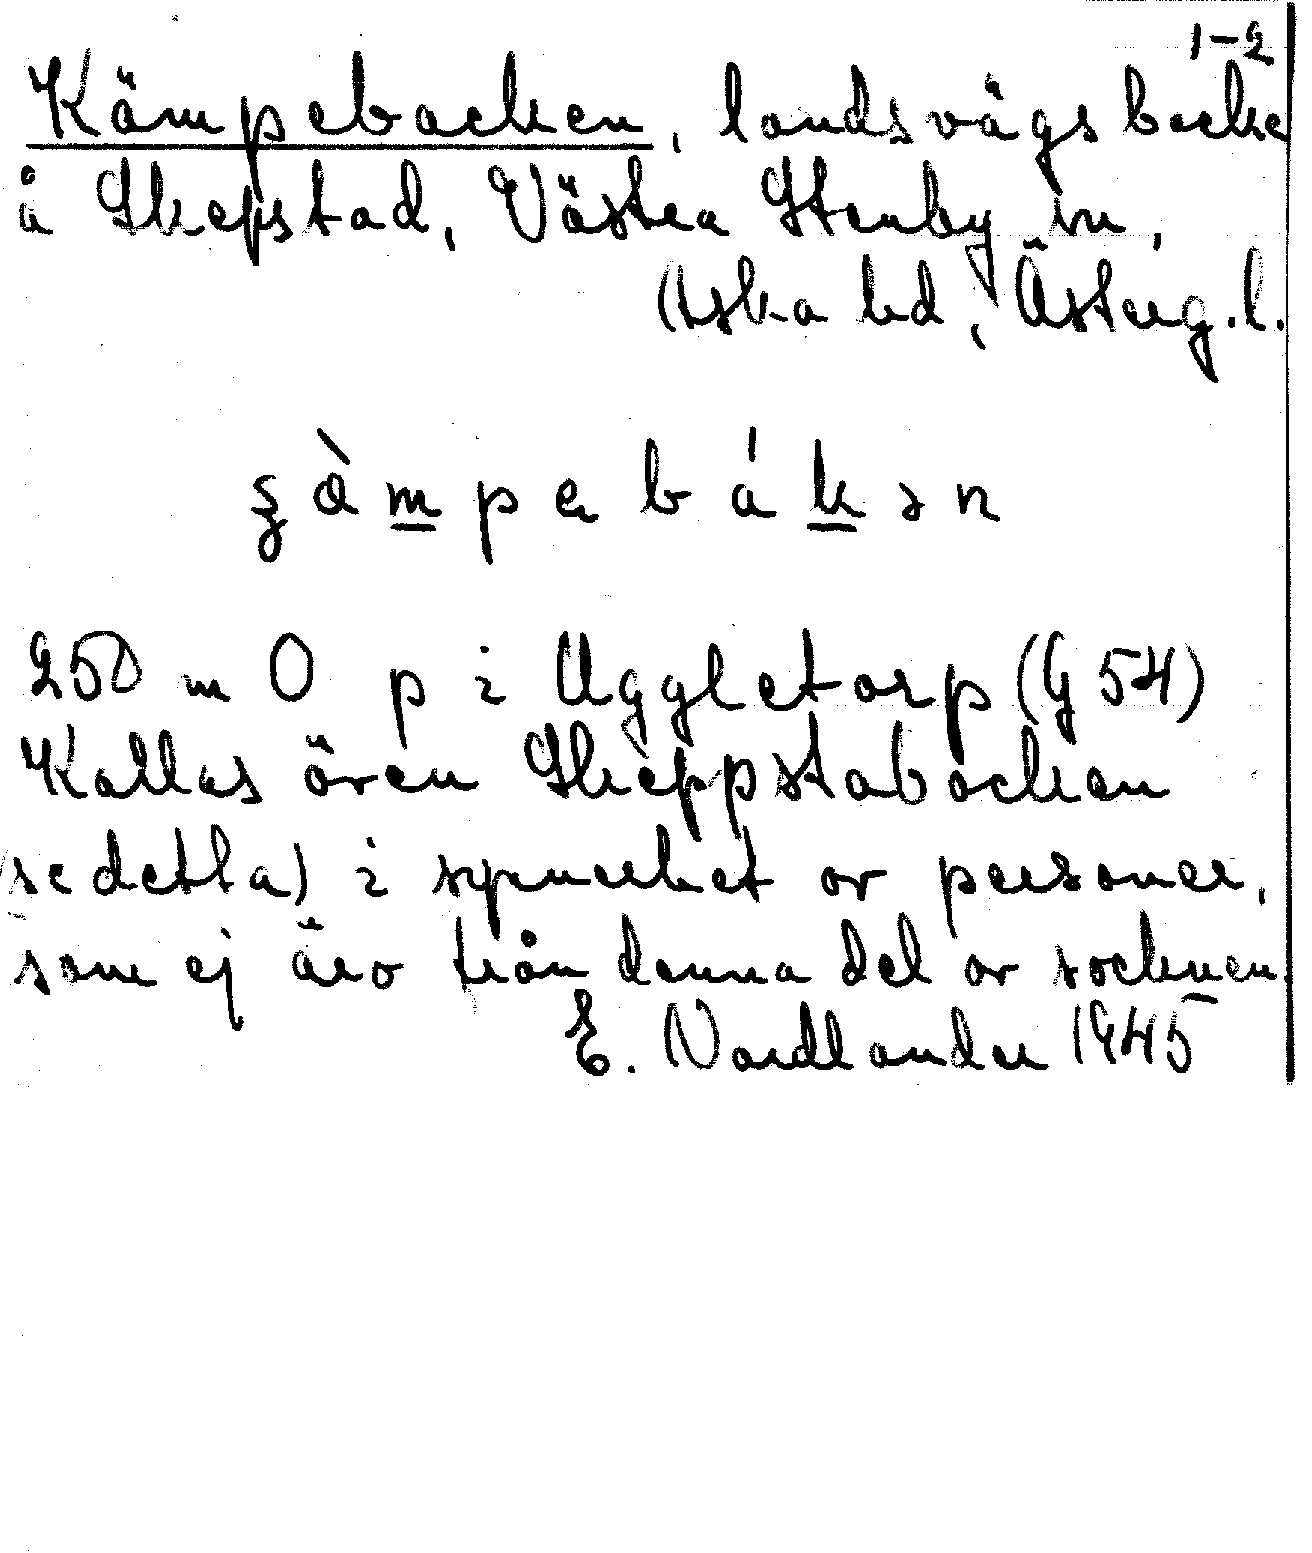 1-2
Kämpebacken, landsvägsbacke
å Skepstad, Västra Stenby sn,
Aska hd, Österg.l.
250 m O p i Uggletorp (G 54)
Kallas även Skeppstabacken
se detta) i synnerhet av personer,
som ej äro från denna del av socknen.
E. Nordlander 1945